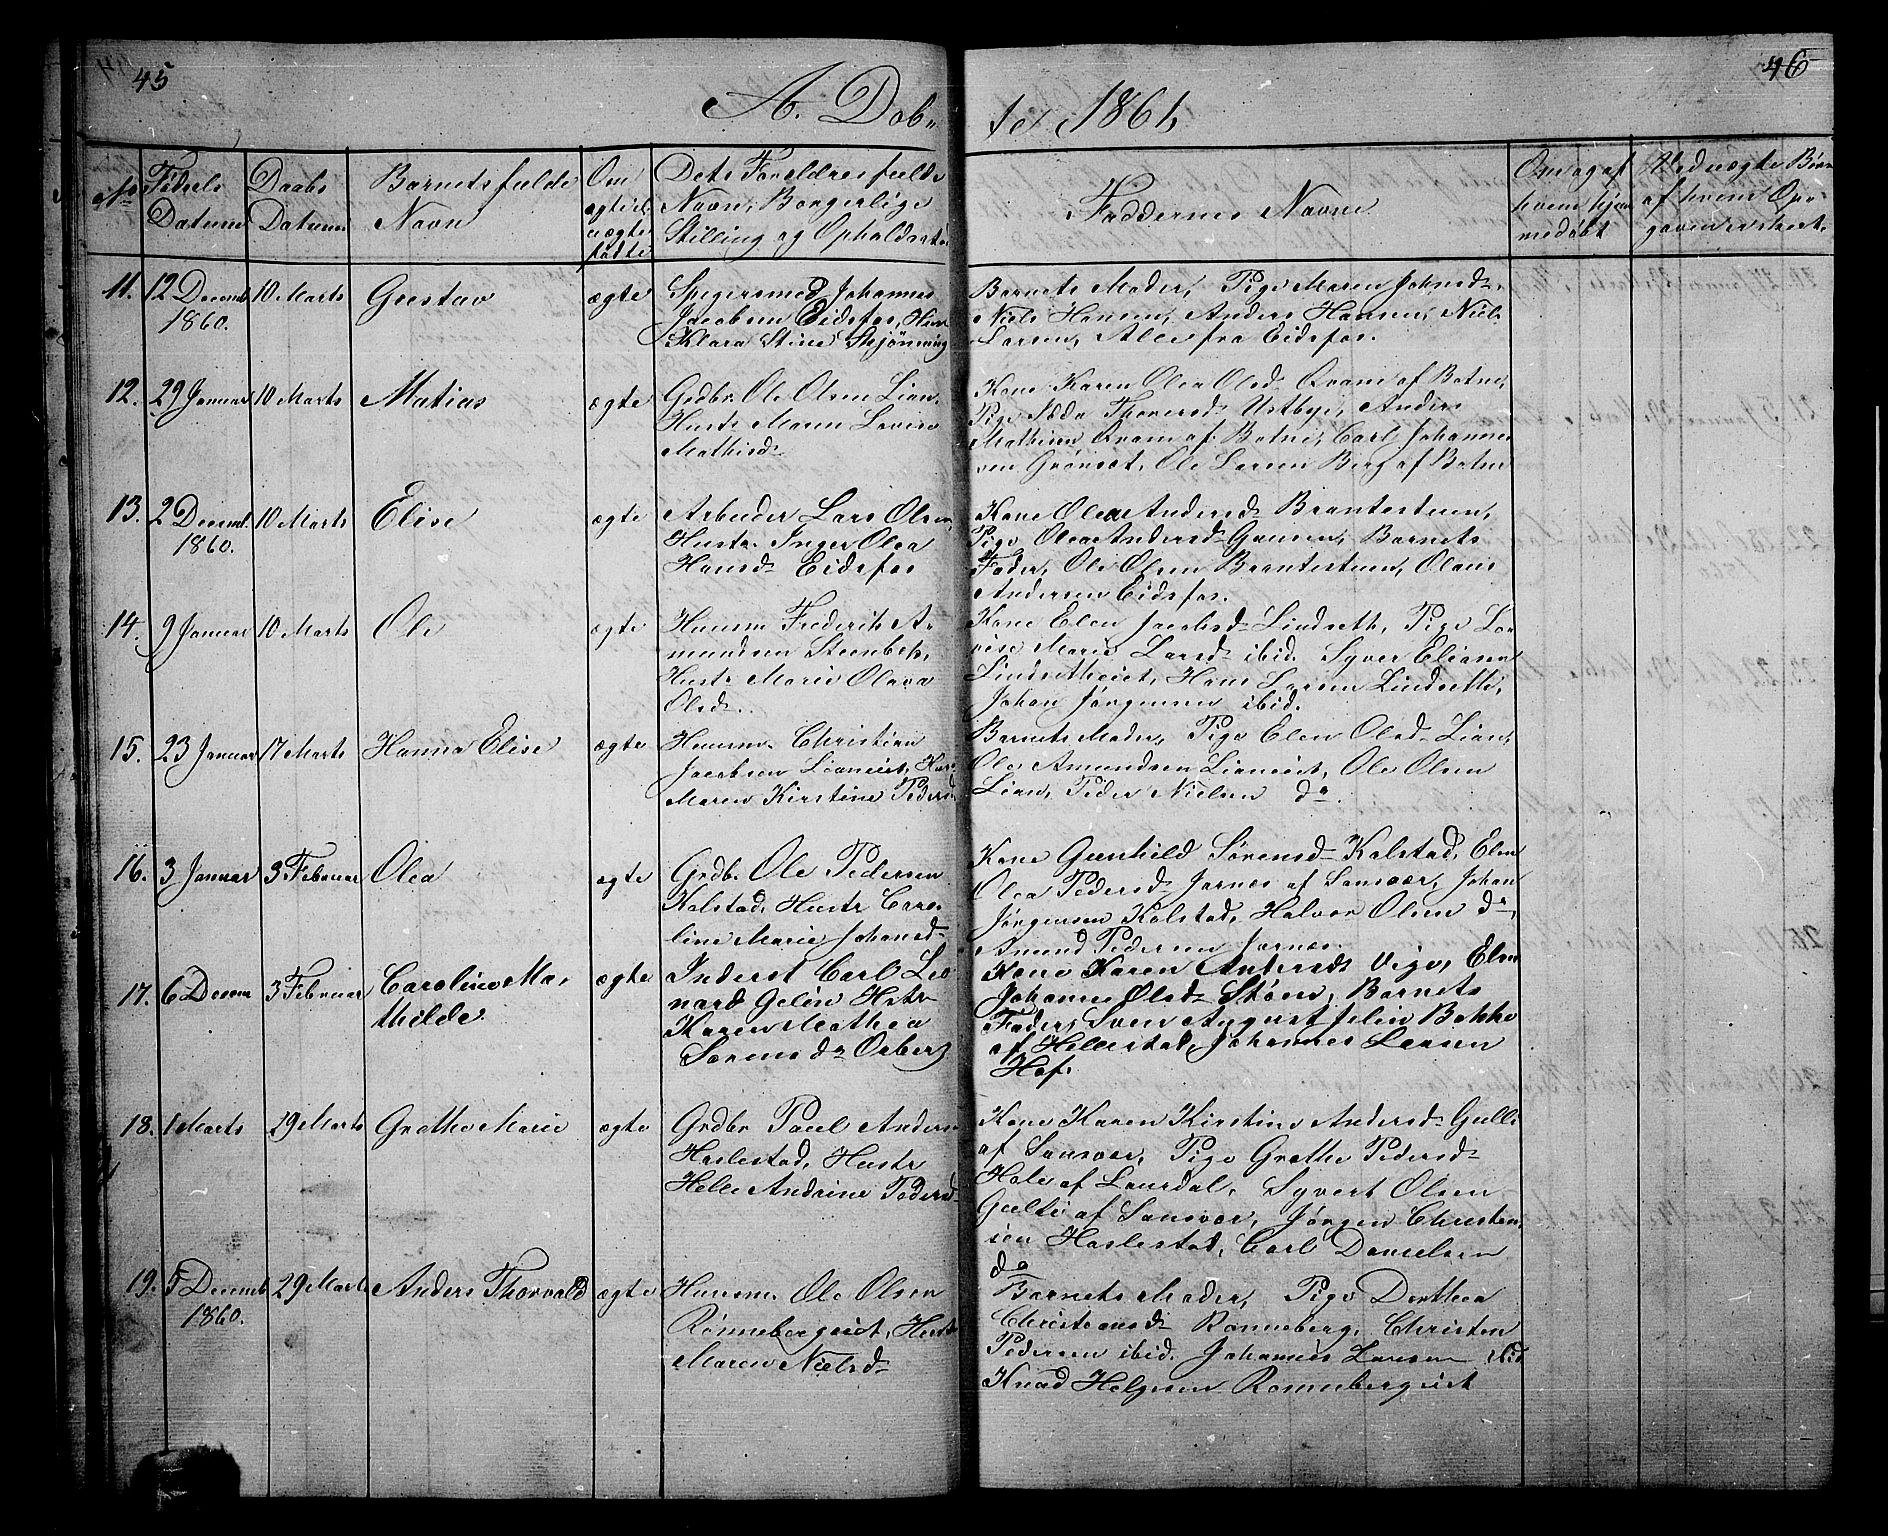 45
46
A. Døb„
te 1861,
No
Fødsels Datum
Daabs Datum
Barnets fulde Navn
Om ægte el. uægte fødte
Dets Forældres fulde Navn, Borgerlige Stilling og Opholdsste
Faddernes Navne
Om og af hvem hjem medøbt
Ved uægte Børn af hvem Opgaven er skeet.
11. 12 Decemb. 1860. 10 Marts Gustav ægte
Spigersmed Johannes
Jacobsen Eidsfos, Hus
Klara Stine Skjønning
Barnets Moder, Pige Maren Johnsd.
Niels Hansen, Anders Hansen, Niels
Larsen, Alle fra Eidsfos.
12. 29 Januar 10 Marts Matias ægte
Grdbr. Ole Olsen Lian,
Hustr Maren Lovise
Mathisd.
Kone Karen Olea Olsd. Qvam af Botne,
Pige Thoresd. Ustbye, Anders
Mathisen Qvam af Botne, Carl Johanne
sen Grønset, Ole Larsen Berg af Botne
13. 2 Decemb. 1860. 10 Marts Elise ægte
Arbeider Lars Olsen,
Hustr. Inger Olea
Hansd. Eidsfos
Kone Olea Andersd. Brantestuen,
Pige Olea Andersd. Gausen, Barnets
Fader, Ole Olsen Brantestuen, Olaus
Andersen Eidsfos.
14. 9 Januar 10 Marts Ole ægte
Huusm Frederik A-
mundsen Steenbek,
Hustr Marie Olava
Olsd.
Kone Elen Jacobsd. Lindseth, Pige Lo-
vise Marie Larsd. ibid. Syver Eliasen
Lindsetheiet, Hans Larsen Lindseth,
Johan Jørgensen ibid.
15. 23 Januar 17 Marts Hanna Elise ægte
Huusm. Christian
Jacobsen Lianeiet, Hus
Maren Kirstine Pedersd
Barnets Moder, Pige Elen Olsd. Lian,
Ole Amundsen Lianeiet, Ole Olsen
Lian, Peder Nielsen do.
16. 3 Januar 3 Februar Olea ægte
Grdbr. Ole Pedersen
Kolstad, Hustr Caro-
line Marie Johansd.
Kone Gunhild Sørensd. Kolstad, Elen
Olea Pedersd. Jarnes af Sansvær, Johan
Jørgensen Kolstad, Halvor Olsen do,
Amund Pedersen Jarnes.
17. 6 Decem 3 Februar Caroline Ma-
thilde. ægte
Inderst Carl Leo
nard Gelön Hstr
Karen Mathea
Sørensdr Orberg
Kone Karen Andersdr Vige, Elen
Johanne Olsd. Støen, Barnets
Fader, Sven August Jelen Bakke
af Hellestad, Johannes Larsen
Hof.
18. 1 Marts 29 Marts Grethe Marie ægte
Grdbr Paul Anders
Haslestad, Hustr
Helle Andrine Pedersd
Kone Karen Kirstine Andersd. Gulli
af Sansvær, Pige Grethe Pedersd.
Hole af Laurdal, Syvert Olsen
Gulli af Sansvær, Jørgen Christen
sen Haslestad, Carl Danielsen
do
19. 5 Decemb 1860. 29 Marts Anders Thorvald ægte
Huusm. Ole Olsen
Rønnebergeiet, Hustr
Maren Nielsd.
Barnets Moder, Pige Dorthea
Christensd. Rønneberg, Christen
Pedersen ibid. Johannes Larsen ibid
Knud Helgesen Rønnebergeiet